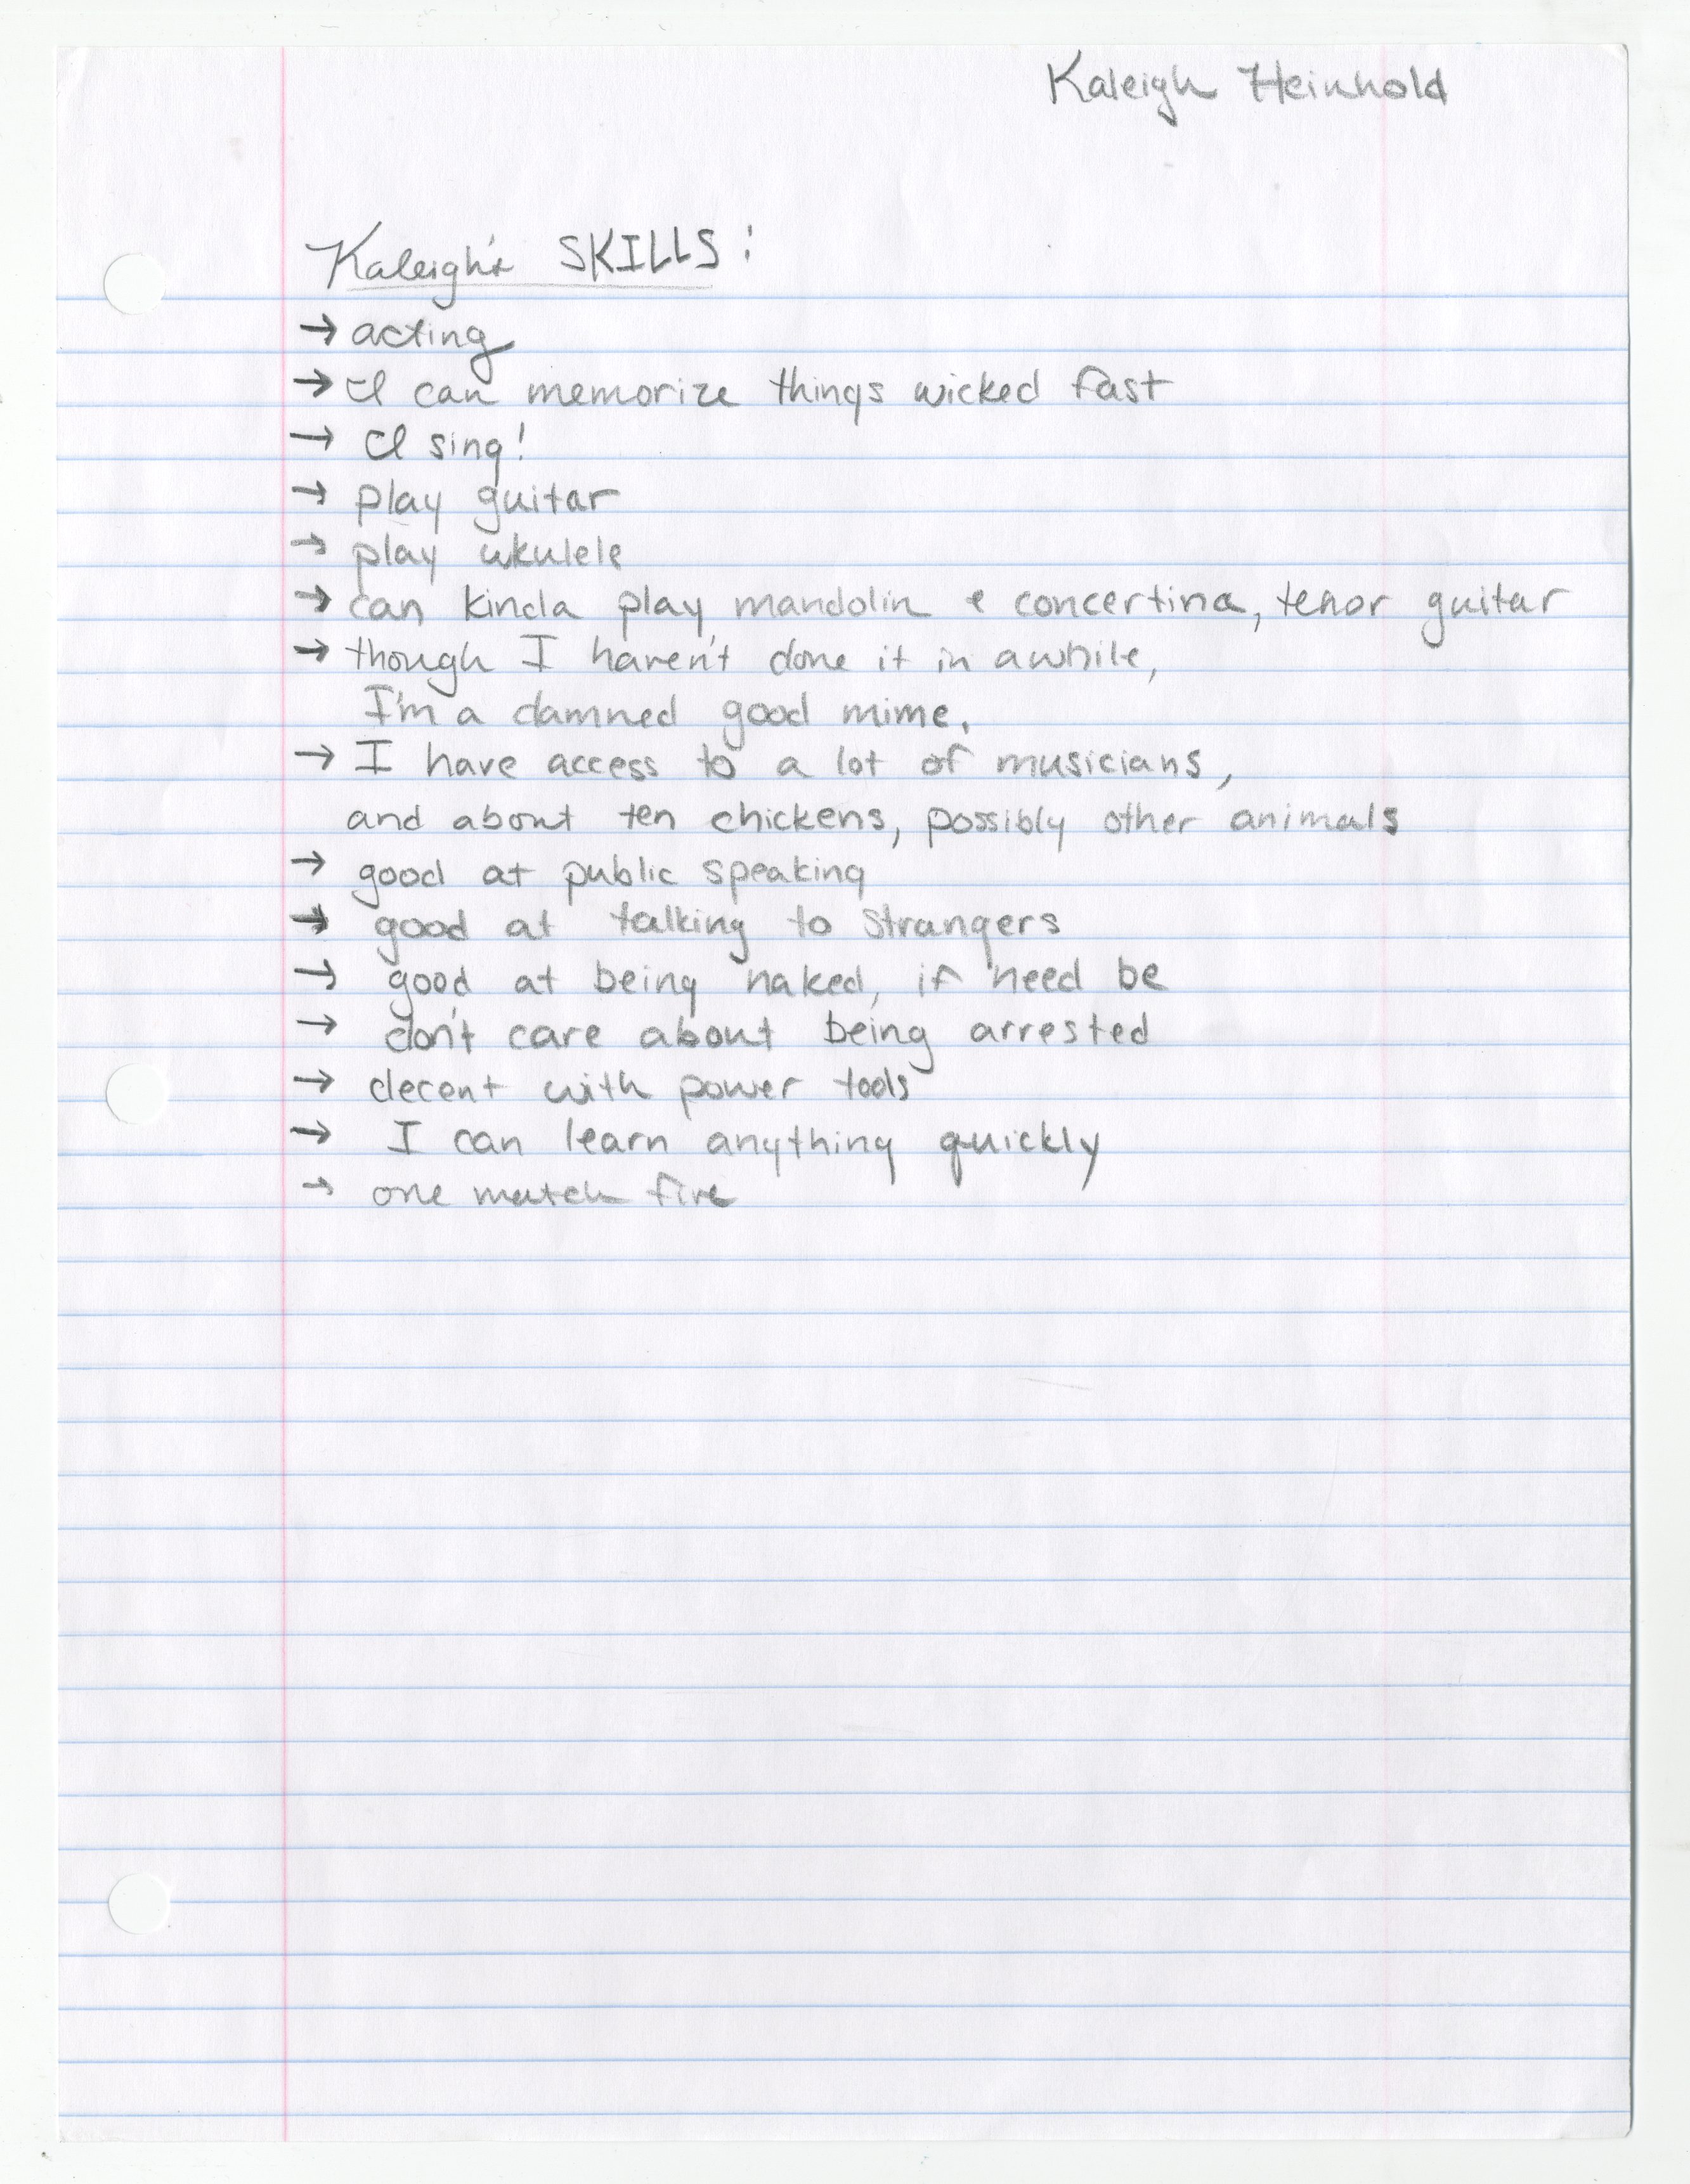 Kaleigh Heinhold
Kaleigh's SKILLS:
→ acting
→ I can memorize things wicked fast
→ I sing!
→ play guitar
→ play ukulele
→ can kinda play mandolin & concertina, tenor guitar
→ though I haven't done it in awhile,
I'm a damned good mime.
→ I have access to a lot of musicians,
and about ten chickens, possibly other animals
→ good at public speaking
→ good at talking to strangers
→ good at being naked, if need be
→ don't care about being arrested
→ decent with power tools
→ I can learn anything quickly
→ one match fire